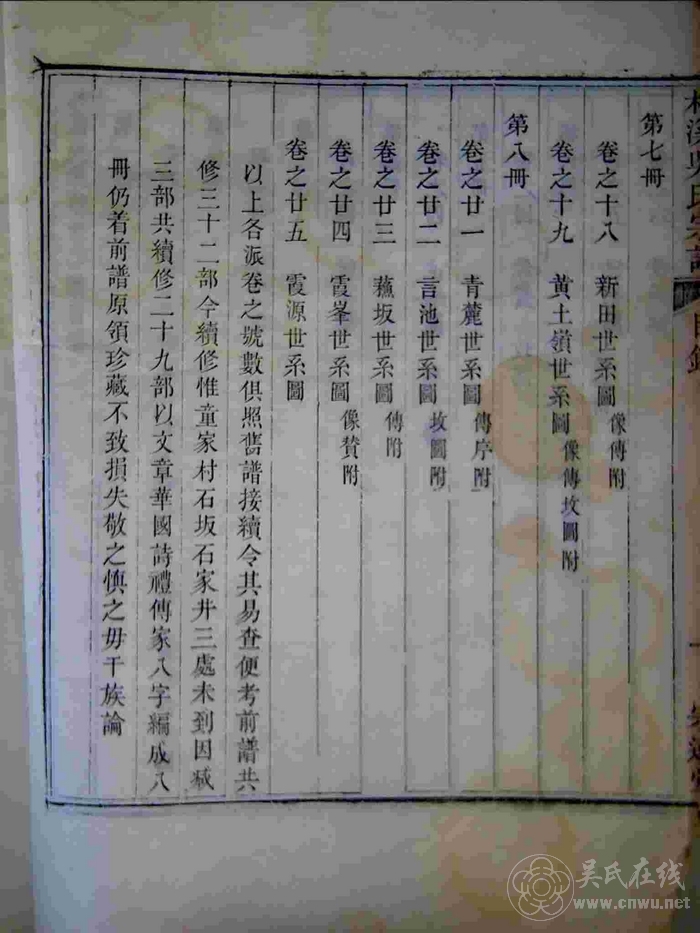 第七冊
卷之十八　新田世系圖　像傳附
卷之十九　黃土嶺世系圖　像傳坟圖附
第八冊
卷之廿一　青麓世系圖　傳序附
卷之廿二　言池世系圖　坟圖附
卷之廿三　蘓坂世系圖　傳附
卷之廿四　霞峯世系圖　像賛附
卷之廿五　霞源世系圖
以上各派卷之號數俱照舊譜接續令其易查便考前譜共
修三十二部今續修惟童家村石坂石家井三處未到因减
三部共續修二十九部以文章華國詩禮傳家八字編成八
冊仍着前譜原領珍藏不致損失敬之慎之毋干族論
吴氏在线
www.cnwu.net